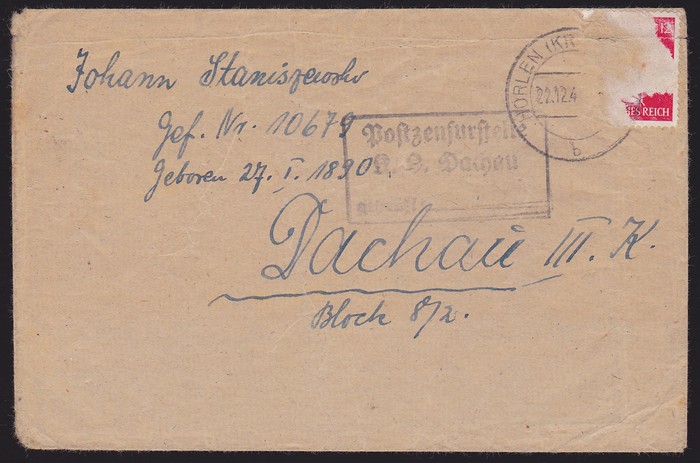 Johann Staniszewski
Gef. Nr. 10679
Geboren 27. I. 1890
Dachau III. K.
Block 8/2.
Postzensurstelle
K. L. Dachau
HÖRLEN (KR
22.12.4
b
12
ES REICH